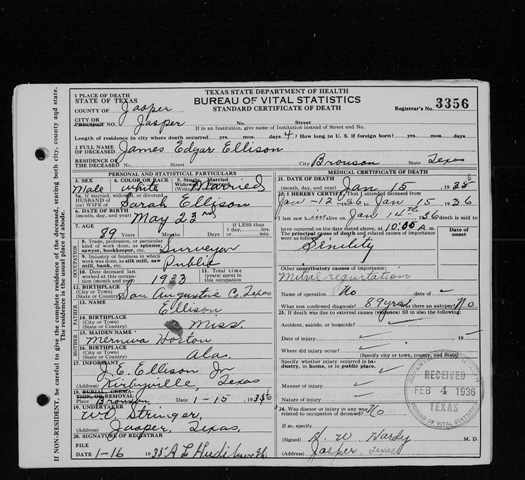 TEXAS STATE DEPARTMENT OF HEALTH
BUREAU OF VITAL STATISTICS
STANDARD CERTIFICATE OF DEATH
Registrar's No. 3356
1 PLACE OF DEATH
STATE OF TEXAS
COUNTY OF Jasper
CITY OR Jasper
Street
If in an Institution, give name of Institution instead of Street and No.
Length of residence in city where death occurred yrs. mos. 4 How long in U. S. if foreign born? yrs. mos. days
2 FULL NAME OF DECEASED James Edgar Ellison
RESIDENCE OF THE DECEASED No. Street City Bronson State Texas
PERSONAL AND STATISTICAL PARTICULARS
3. SEX Male
4. COLOR OR RACE White
5. Single Married Widowed Married
HUSBAND OF or WIFE OF Sarah Ellison
6. DATE OF BIRTH (month, day, and year) May 23rd
7. AGE 89 If LESS than 1 day
8. Trade, profession, or particular kind of work done, as spinner, sawyer, bookkeeper, etc. Surveyor
9. Industry or business in which work was done, as silk mill, saw mill, bank, etc. Public
10. Date deceased last worked at this occupation (month and year) 1933
11. Total time (years) spent in this occupation
12. BIRTHPLACE (City or Town) (State or County) San Augustine C. Texas
13. NAME Ellison
14. BIRTHPLACE (City or Town) (State or County) Miss.
15. MAIDEN NAME Horton
16. BIRTHPLACE (City or Town) (State or County) Ala.
17. INFORMANT J. E. Ellison Jr
(Address) Kirbyville, Texas
OR REMOVAL
Bronson 1-15
19. UNDERTAKER W. C. Stringer,
(Address) Jasper, Texas,
20. SIGNATURE OF REGISTRAR
FILE DATE 1-16
MEDICAL CERTIFICATE OF DEATH
21. DATE OF DEATH (month, day, and year) Jan 15
22. I HEREBY CERTIFY, That I attended deceased from
Jan-12-36 Jan 15 1936
I last saw him Jan 14th 36
occurred on the date stated above at 10.00 A. m.
The principal cause of death and related causes of importance were as follows:
Date of onset
Senility
Other contributory causes of importance:
Mitral regurgitation
Name of operation No date of
What test confirmed diagnosis? 89 yrs autopsy? No
23. If death was due to external causes (violence) fill in also the following:
Accident, suicide, or homicide?
Date of injury
Where did injury occur?
(Specify city or town, county, and state)
Specify whether injury occurred in industry, in home, or in public place.
Manner of injury
Nature of injury
24. Was disease or injury in any way related to occupation of deceased? No
(Signed) W Hardy M. D.
(Address) Jasper Texas
RECEIVED
FEB 4 1936
TEXAS
BUREAU OF VITAL STATISTICS